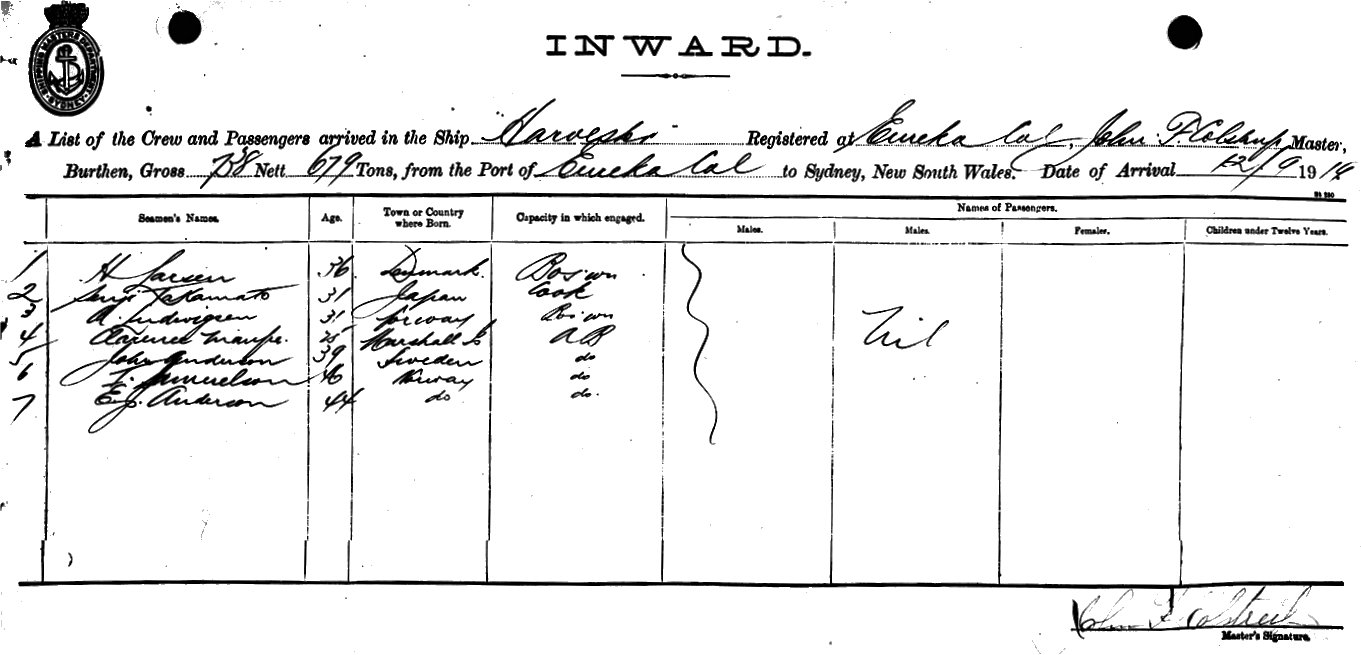 SHIPPING MASTERS DEPARTMENT SYDNEY
INWARD.
A List of the Crew and Passengers arrived in the Ship Registered at Eureka Cal, John F. Master,
Burthen, Gross 738 Nett 679 Tons, from the Port of Eureka Cal to Sydney, New South Wales. Date of Arrival 12/9 19
Names of Passengers.
Seamen's Names. Age. Town or Country where Born. Capacity in which engaged. Males. Males. Females. Children under Twelve Years.
1 H Larsen 36 Denmark. Bos'wn
2 Takamato 31 Japan Cook
3 A. Ludwigsen 31 Norway Bos'wn
4 Clarence 25 Marshall Is AB
5 John Anderson 39 Sweden do
6 Samuelson 46 Norway do
7 Anderson 44 do do.
Nil
John F
Master's Signature.